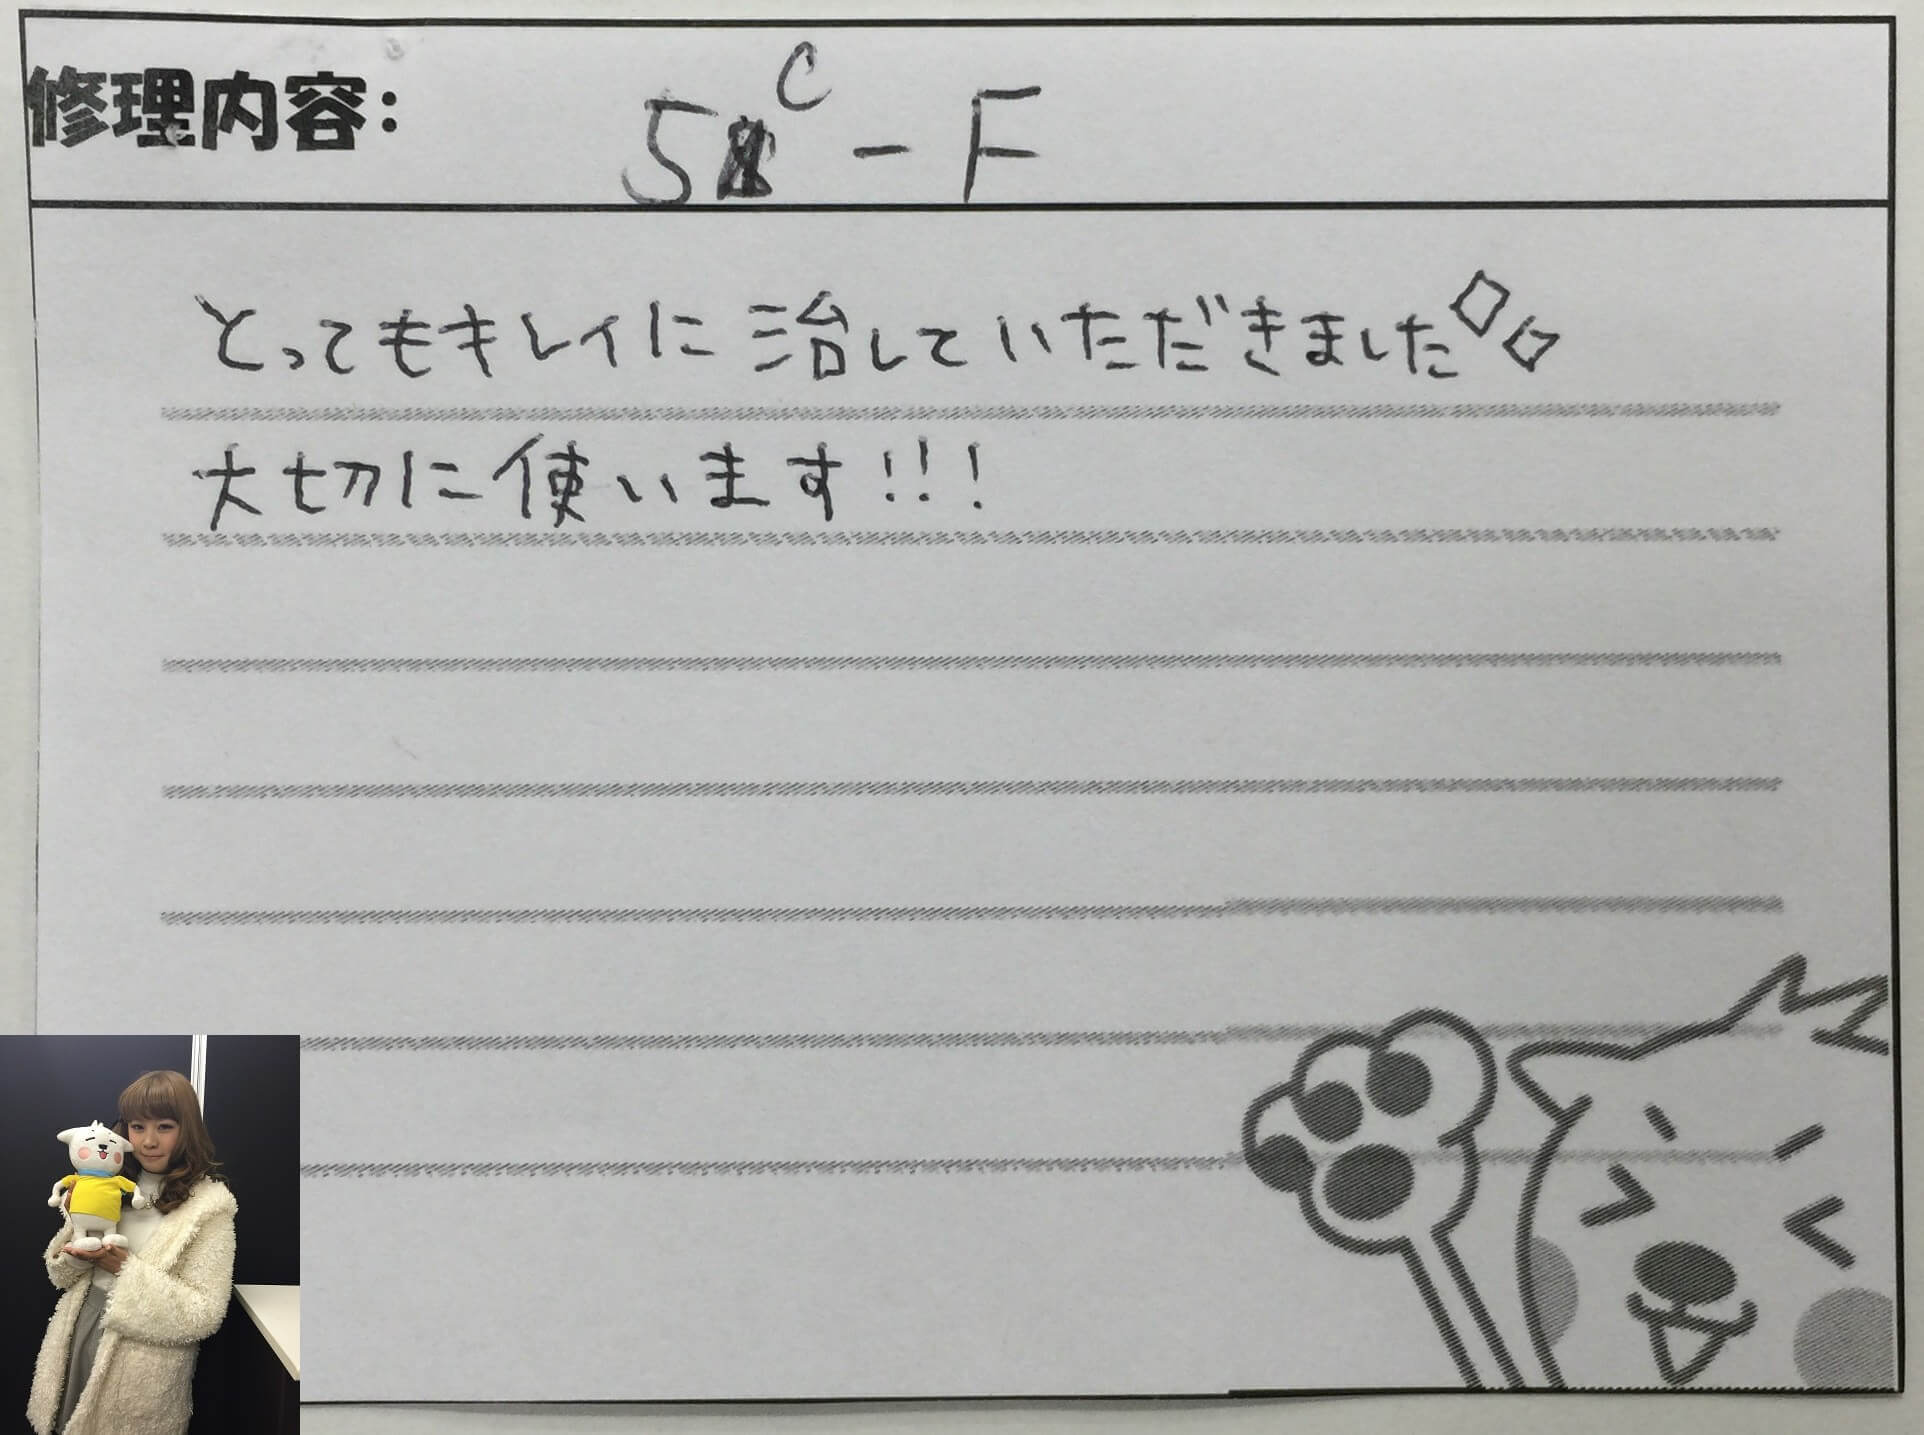 修理内容: 5C-F
とってもキレイに治していただきました
大切に使います!!!